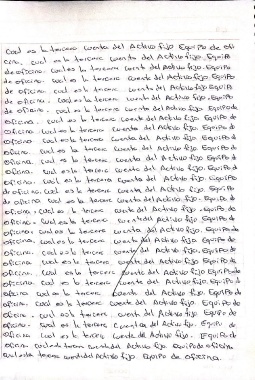 Cual es la tercera cuenta del Activo fijo Equipo de ofi
cina. cual es la tercera cuenta del Activo fijo. Equipo
de oficina. cual es la tercera cuenta del Activo fijo. Equipo
de oficina. cual es la tercera cuenta del Activo fijo. Equipo
de oficina. cual es la tercera cuenta del Activo fijo. Equipo
de oficina. cual es la tercera cuenta del Activo fijo. Equipo
de oficina. cual es la tercera cuenta del Activo fijo. Equipo de
oficina. cual es la tercera cuenta del Activo fijo. Equipo de
oficina. cual es la tercera cuenta del Activo fijo. Equipo de
oficina. cual es la tercera cuenta del Activo fijo. Equipo de
oficina. cual es la tercera cuenta del Activo fijo. Equipo de
oficina. cual es la tercera cuenta del Activo fijo. Equipo
de oficina. cual es la tercera cuenta del Activo fijo. Equipo
de oficina cual es la tercera cuenta del Activo fijo. Equipo de
oficina. cual es la tercera cuenta del Activo fijo. Equipo de
oficina. cual es la tercera cuenta del Activo fijo. Equipo de
oficina. cual es la tercera cuenta del Activo fijo. Equipo de
oficina. cual es la tercera cuenta del Activo fijo. Equipo de
oficina. cual es la tercera cuenta del Activo fijo. Equipo de
oficina. cual es la tercera cuenta del Activo fijo. Equipo de
oficina. cual es la tercera cuenta del Activo fijo. Equipo de
oficina cual es la tercera cuenta del Activo fijo. Equipo de
oficina cual es la tercera cuenta del Activo fijo. Equipo de
oficina. cual es la tercera cuenta del Activo fijo. Equipo de
oficina. cual es la tercera cuenta del Activo fijo. Equipo de
oficina cual es la tercera cuenta del Activo fijo. Equipo de
oficina. cual es la tercera cuenta del Activo fijo. equipo de oficina
cual es la tercera cuenta del Activo fijo. Equipo de oficina.